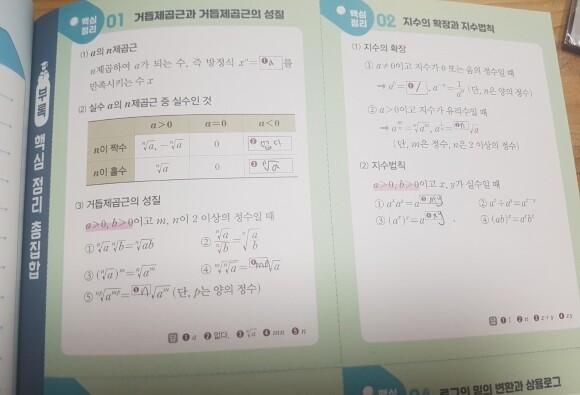 부록 핵심 정리 총집합
핵심 정리 01 거듭제곱근과 거듭제곱근의 성질
(1) a의 n제곱근
n제곱하여 a가 되는 수, 즉 방정식 xⁿ=❶a를
만족시키는 수 x
(2) 실수 a의 n제곱근 중 실수인 것
a>0 a=0 a<0
n이 짝수 ⁿ√a, -ⁿ√a 0 ❷없다
n이 홀수 ⁿ√a 0 ❸ⁿ√a
(3) 거듭제곱근의 성질
a>0, b>0이고 m, n이 2 이상의 정수일 때
① ⁿ√a ⁿ√b=ⁿ√ab ② ⁿ√a/ⁿ√b=ⁿ√(a/b)
③ (ⁿ√a)ᵐ=ⁿ√aᵐ ④ ᵐ√ⁿ√a=❹mn√a
⑤ ⁿᵖ√aᵐᵖ=❺n√aᵐ (단, p는 양의 정수)
답 ❶ a ❷ 없다. ❸ ⁿ√a ❹ mn ❺ n
핵심 정리 02 지수의 확장과 지수법칙
(1) 지수의 확장
① a≠0이고 지수가 0 또는 음의 정수일 때
➔ a⁰=❶1, a⁻ⁿ=1/aⁿ (단, n은 양의 정수)
② a>0이고 지수가 유리수일 때
➔ a^(m/n)=ⁿ√aᵐ, a^(1/n)=❷n√a
(단, m은 정수, n은 2 이상의 정수)
(2) 지수법칙
a>0, b>0이고 x, y가 실수일 때
① aˣaʸ=a❸x+y ② aˣ÷aʸ=aˣ⁻ʸ
③ (aˣ)ʸ=a❹xy ④ (ab)ˣ=aˣbˣ
답 ❶ 1 ❷ n ❸ x+y ❹ xy
핵심
로그의 밑의 변환과 상용로그